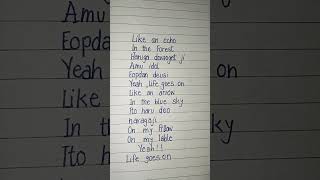 Like an echo
In the forest
Haruga dawaget ji
Amu idol
Eopdan deusi
Yeah , life goes on
Like an arrow
In the blue sky
Ito haru doo
naragaji
On my Pillow
On my table
Yeah!!
Life goes on